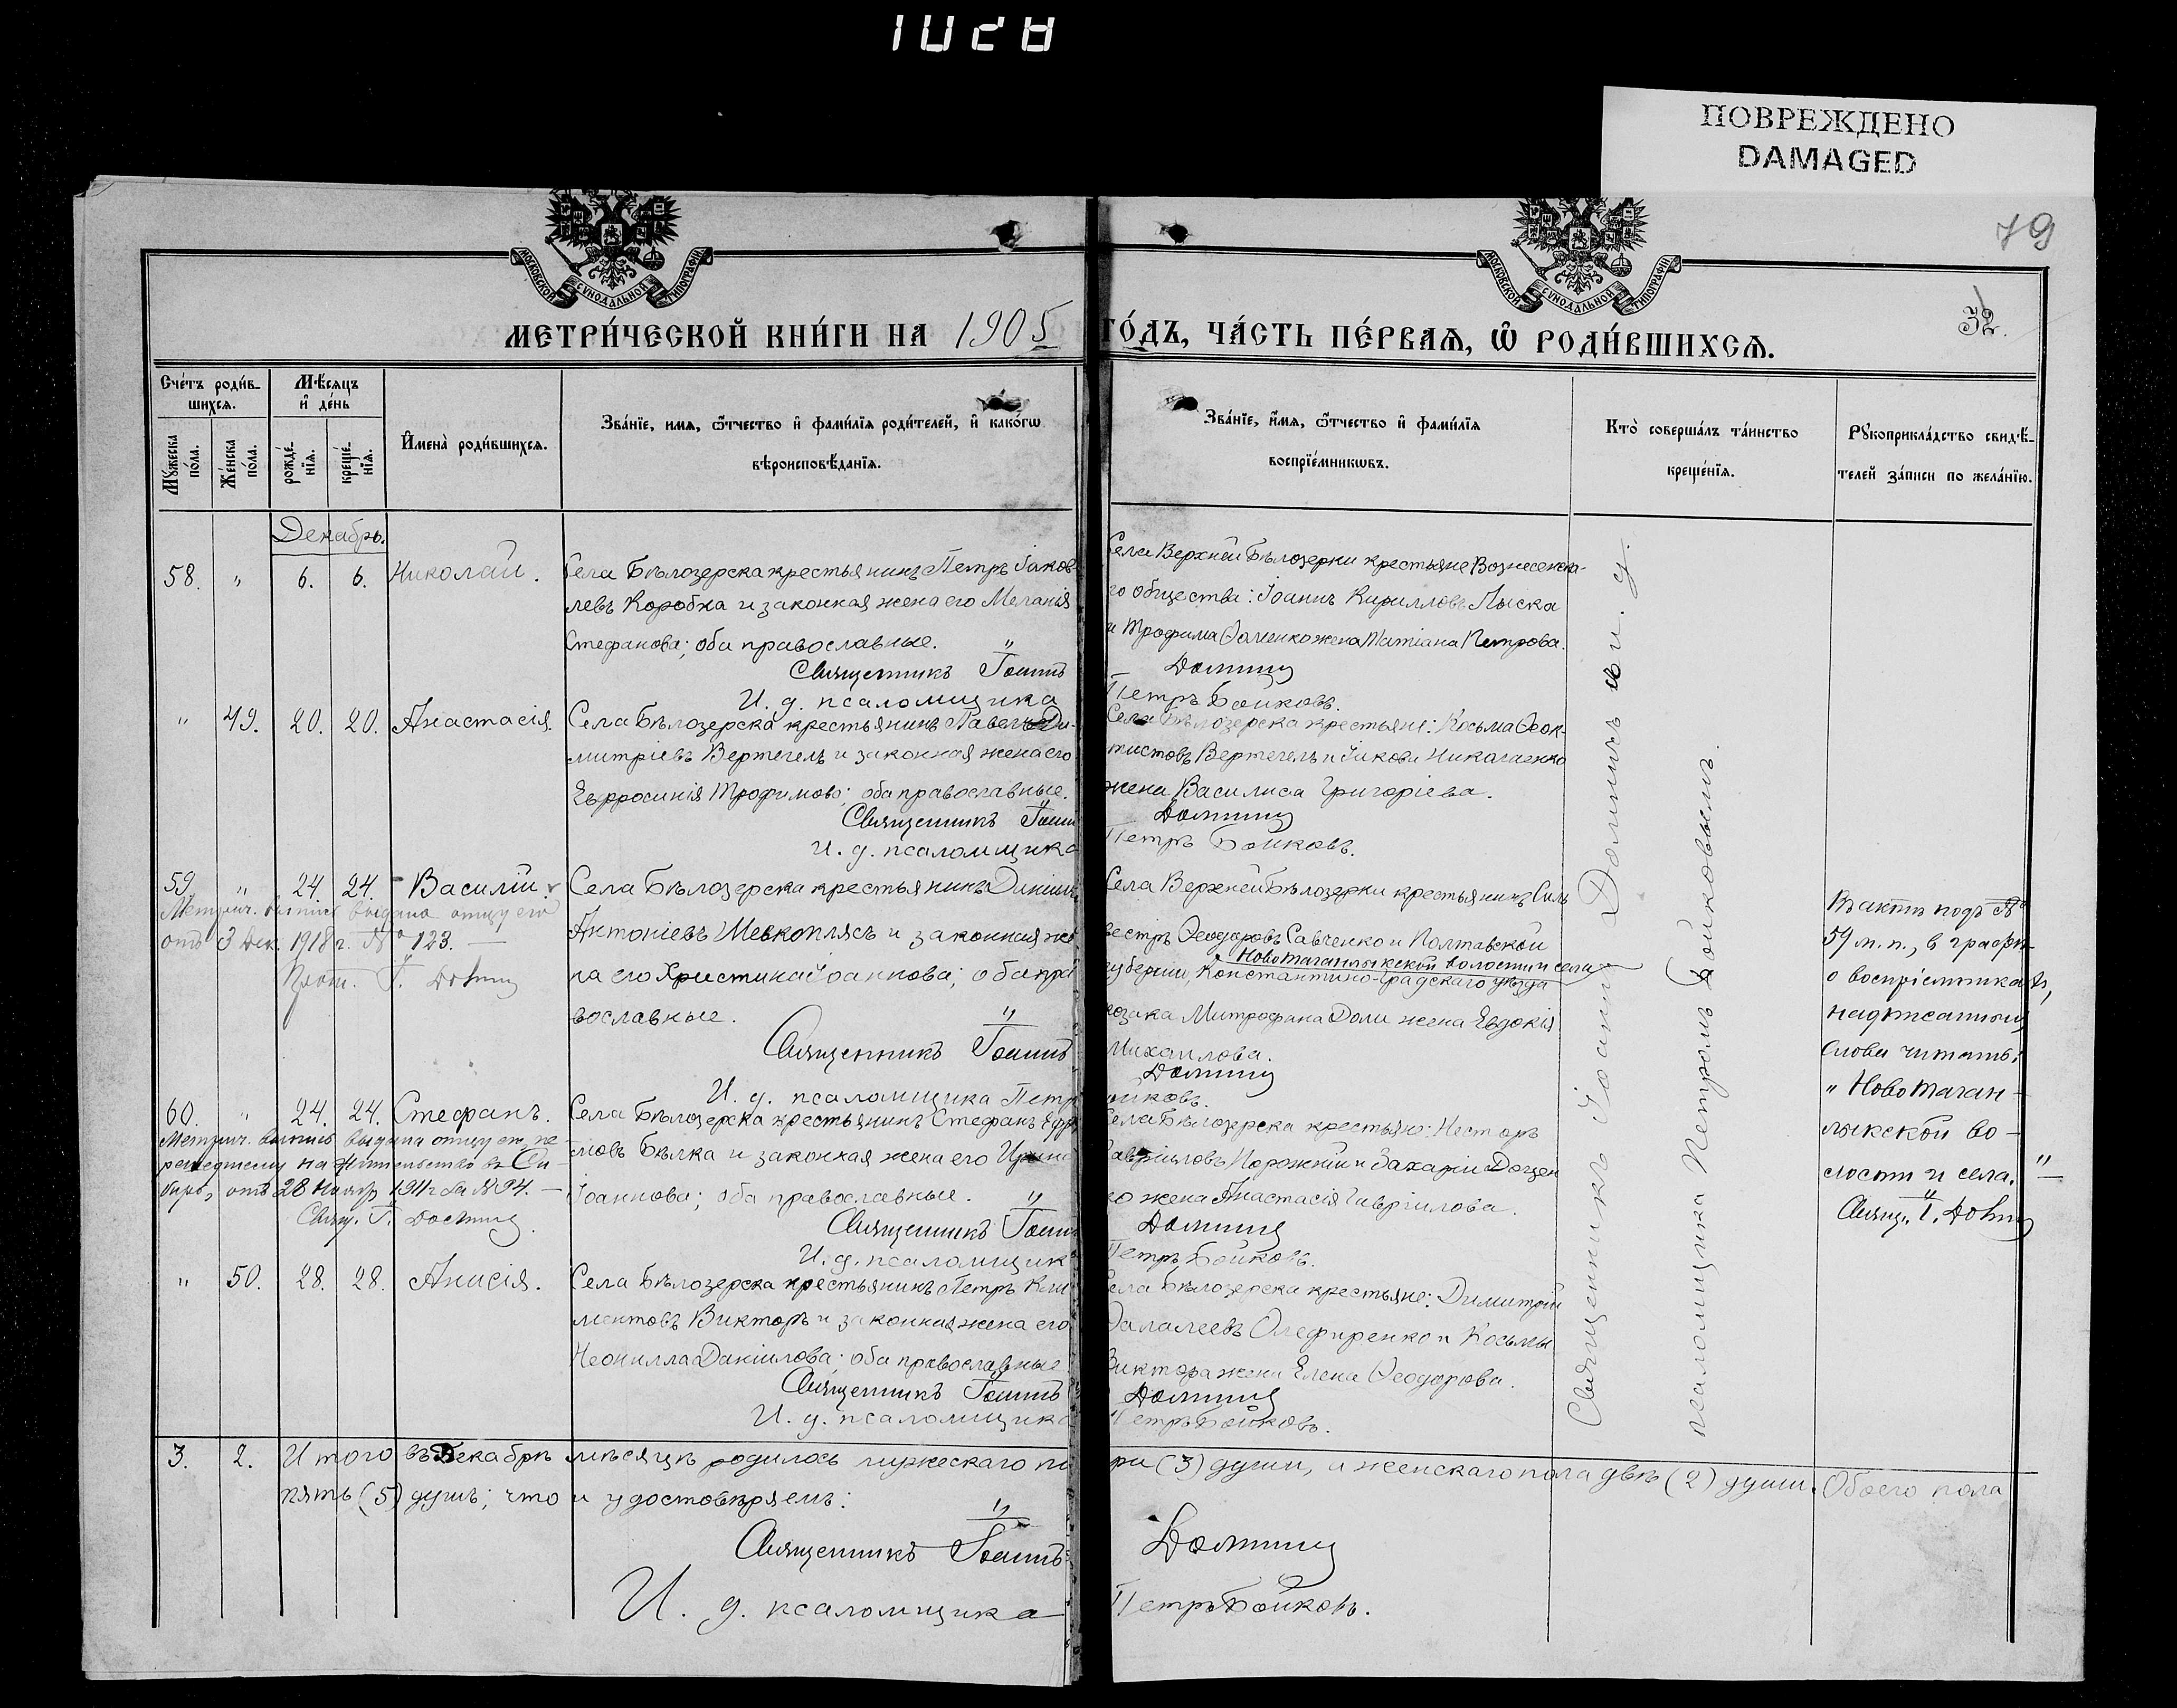 1028
ПОВРЕЖДЕНО
DAMAGED
79
МОСКОВСКОЙ СѴНОДАЛЬНОЙ ТИПОГРАФІИ
МОСКОВСКОЙ СѴНОДАЛЬНОЙ ТИПОГРАФІИ
32.
МЕТРИ́ЧЕСКОЙ КНИ́ГИ НА 1905 ГО́ДЪ, ЧА́СТЬ ПЕ́РВАѦ, Ѡ҆ РОДИ́ВШИХСѦ.
Сче́тъ роди́в-
шихсѧ.
Мꙋ́жеска по́ла.
Же́нска по́ла.
Мѣ́сѧцъ
и҆ де́нь
рожде́-
нїѧ.
креще́-
нїѧ.
И҆мена̀ роди́вшихсѧ.
Зва́нїе, имѧ, ѻ҆́тчество и҆ фами́лїѧ роди́телей, и҆ како́гѡ
вѣроисповѣ́данїѧ.
Зва́нїе, и҆́мѧ, ѻ҆́тчество и҆ фами́лїѧ
воспрїе́мникѡвъ.
Кто̀ соверша́лъ та́инство
креще́нїѧ.
Рꙋкоприкла́дство свидѣ́-
телей за́писи по жела́нїю.
Декабрь.
58. " 6. 6. Николай.
Села Бѣлозерска крестьянинъ Петръ Іаков
левъ Коробка и законная жена его Меланія
Стефанова; оба православные.
Священникъ Іоаннъ
И. д. псаломщика
Села Верхней Бѣлозерки крестьяне Вознесенска-
го общества: Іоаннъ Кирилловъ Лыска
и Трофима жена Татіана Петрова.
Долинъ
Петръ Бойковъ.
" 49. 20. 20. Анастасія.
Села Бѣлозерска крестьянинъ Павелъ Ди-
митріевъ Вертегелъ и законная жена его
Евфросинія Трофимова; оба православные.
Священникъ Іоанн
И. д. псаломщика
Села Бѣлозерска крестьяне: Косьма Ѳеок-
тистовъ Вертегелъ и Іакова
жена Василиса Григоріева.
Долинъ
Петръ Бойковъ.
59. " 24. 24. Василій.
Метрич. выпись выдана отцу его
отъ 3 дек. 1918 г. № 123. —
Прот. І. Долинъ
Села Бѣлозерска крестьянинъ Даніилъ
Антоніевъ Шевкоплясъ и законная же
на его Христина Іоаннова; оба пра
вославные.
Священникъ Іоаннъ
И. д. псаломщика Петр
Села Верхней Бѣлозерки крестьянинъ Силь
вестръ Ѳеодоровъ Савченко и Полтавской
Новотаганлыкской волости и села
губерніи, Константино-Градскаго уѣзда
козака Митрофана Доли жена Евдокія
Михаилова.
Долинъ
ойковъ.
Въ актѣ подъ №
59 м. п., в графѣ
о воспріемникахъ,
надписанныя
слова читать:
"Новотаган-
лыкской во-
лости и села."
Свящ. І. Долинъ
60. " 24. 24. Стефанъ.
Метрич. выпись выдана отцу его, пе-
решедшему на жительство въ Си-
бирь, отъ 28 Ноябр 1911 г. за № 94. —
Свящ. І. Долинъ.
Села Бѣлозерска крестьянинъ Стефанъ Ефр
емовъ Бѣлка и законная жена его Ирина
Іоаннова; оба православные.
Священникъ Іоанн
И. д. псаломщик
Села Бѣлозерска крестьяне: Несторъ
Гавріиловъ Порожній и Захаріи Доцен
ко жена Анастасія Гавріилова.
Долинъ
Петръ Бойковъ.
" 50. 28. 28. Анисія.
Села Бѣлозерска крестьянинъ Петръ Кли
ментовъ Викторъ и законная жена его
Неонилла Даніилова; оба православные
Священникъ Іоаннъ
И. д. псаломщика
Села Бѣлозерска крестьяне: Димитрій
Олефиренко и Косьмы
Виктора жена Елена Ѳеодорова.
Долинъ
Петръ Бойковъ.
Священникъ Іоаннъ Долинъ съ и. д.
псаломщика Петромъ Бойковымъ.
3. 2. Итого въ Декабрѣ мѣсяцѣ родилось мужескаго по
ри (3) души, и женскаго пола двѣ (2) души. Обоего пола
пять (5) душъ; что и удостовѣряемъ:
Священникъ Іоаннъ Долинъ
И. д. псаломщика Петръ Бойковъ.